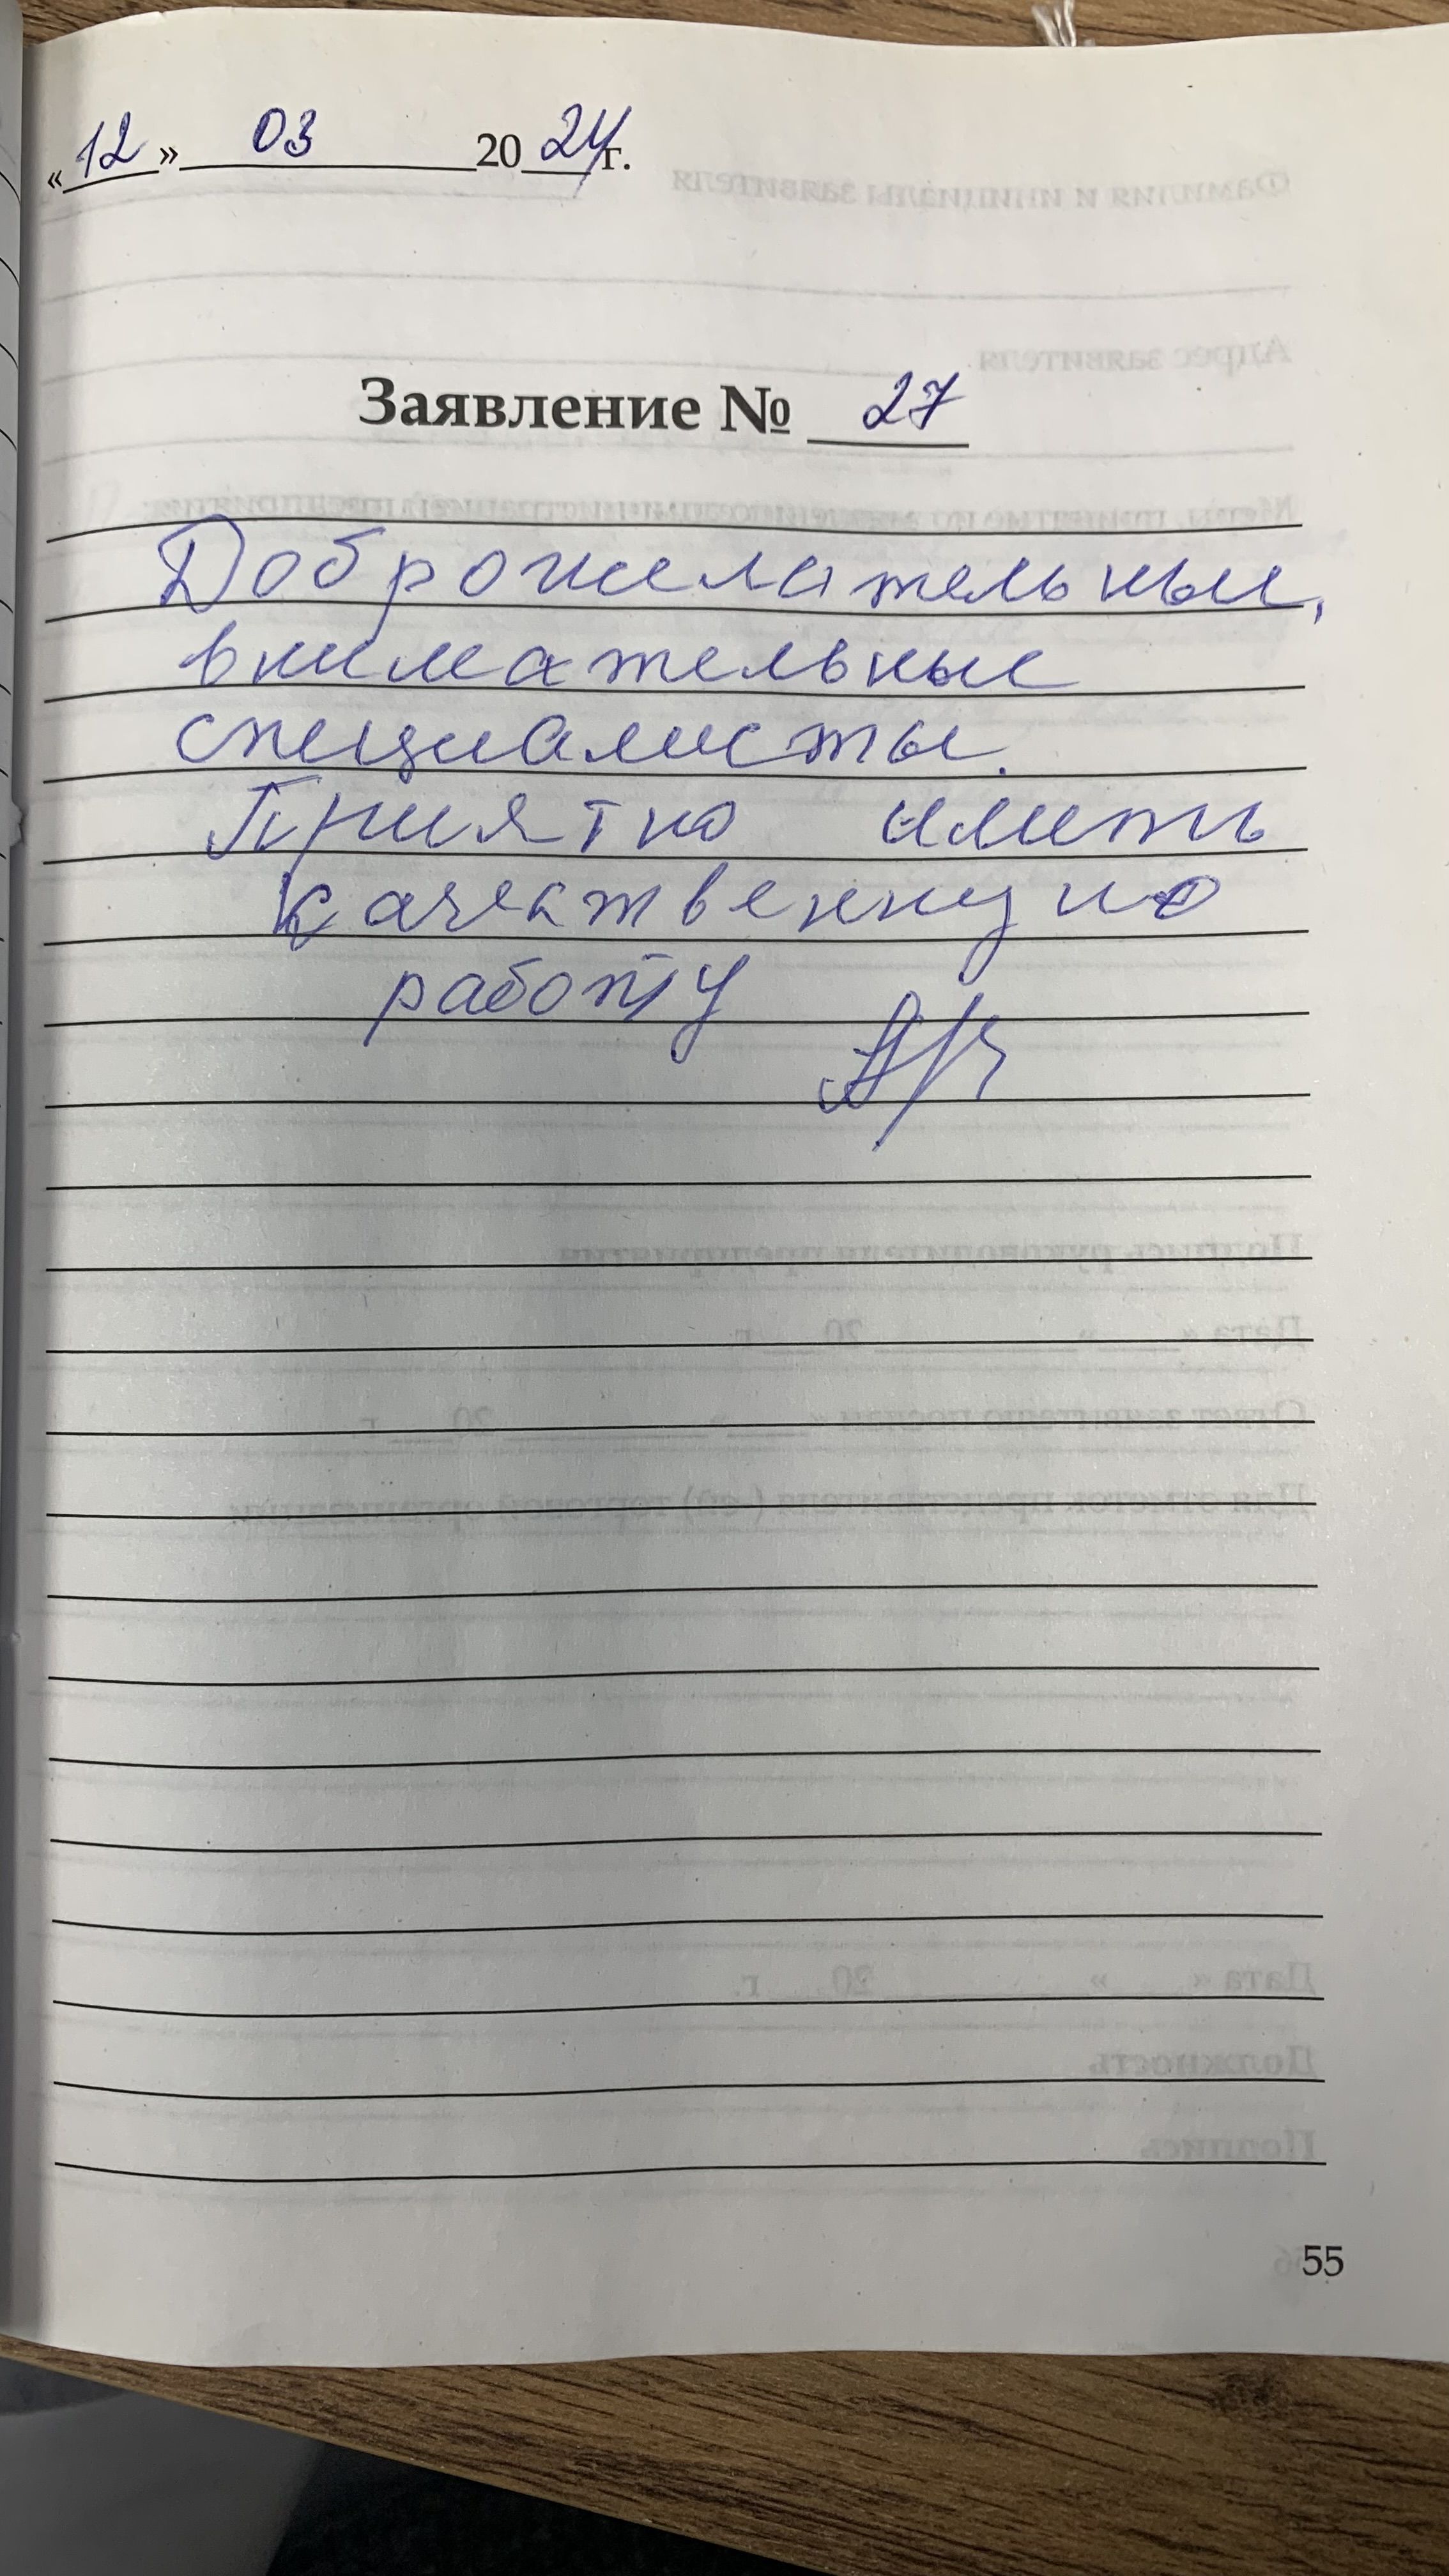 «12» 03 2024 г.
Заявление № 27
Доброжелательные,
внимательные
специалисты.
Приятно иметь
качественную
работу
55